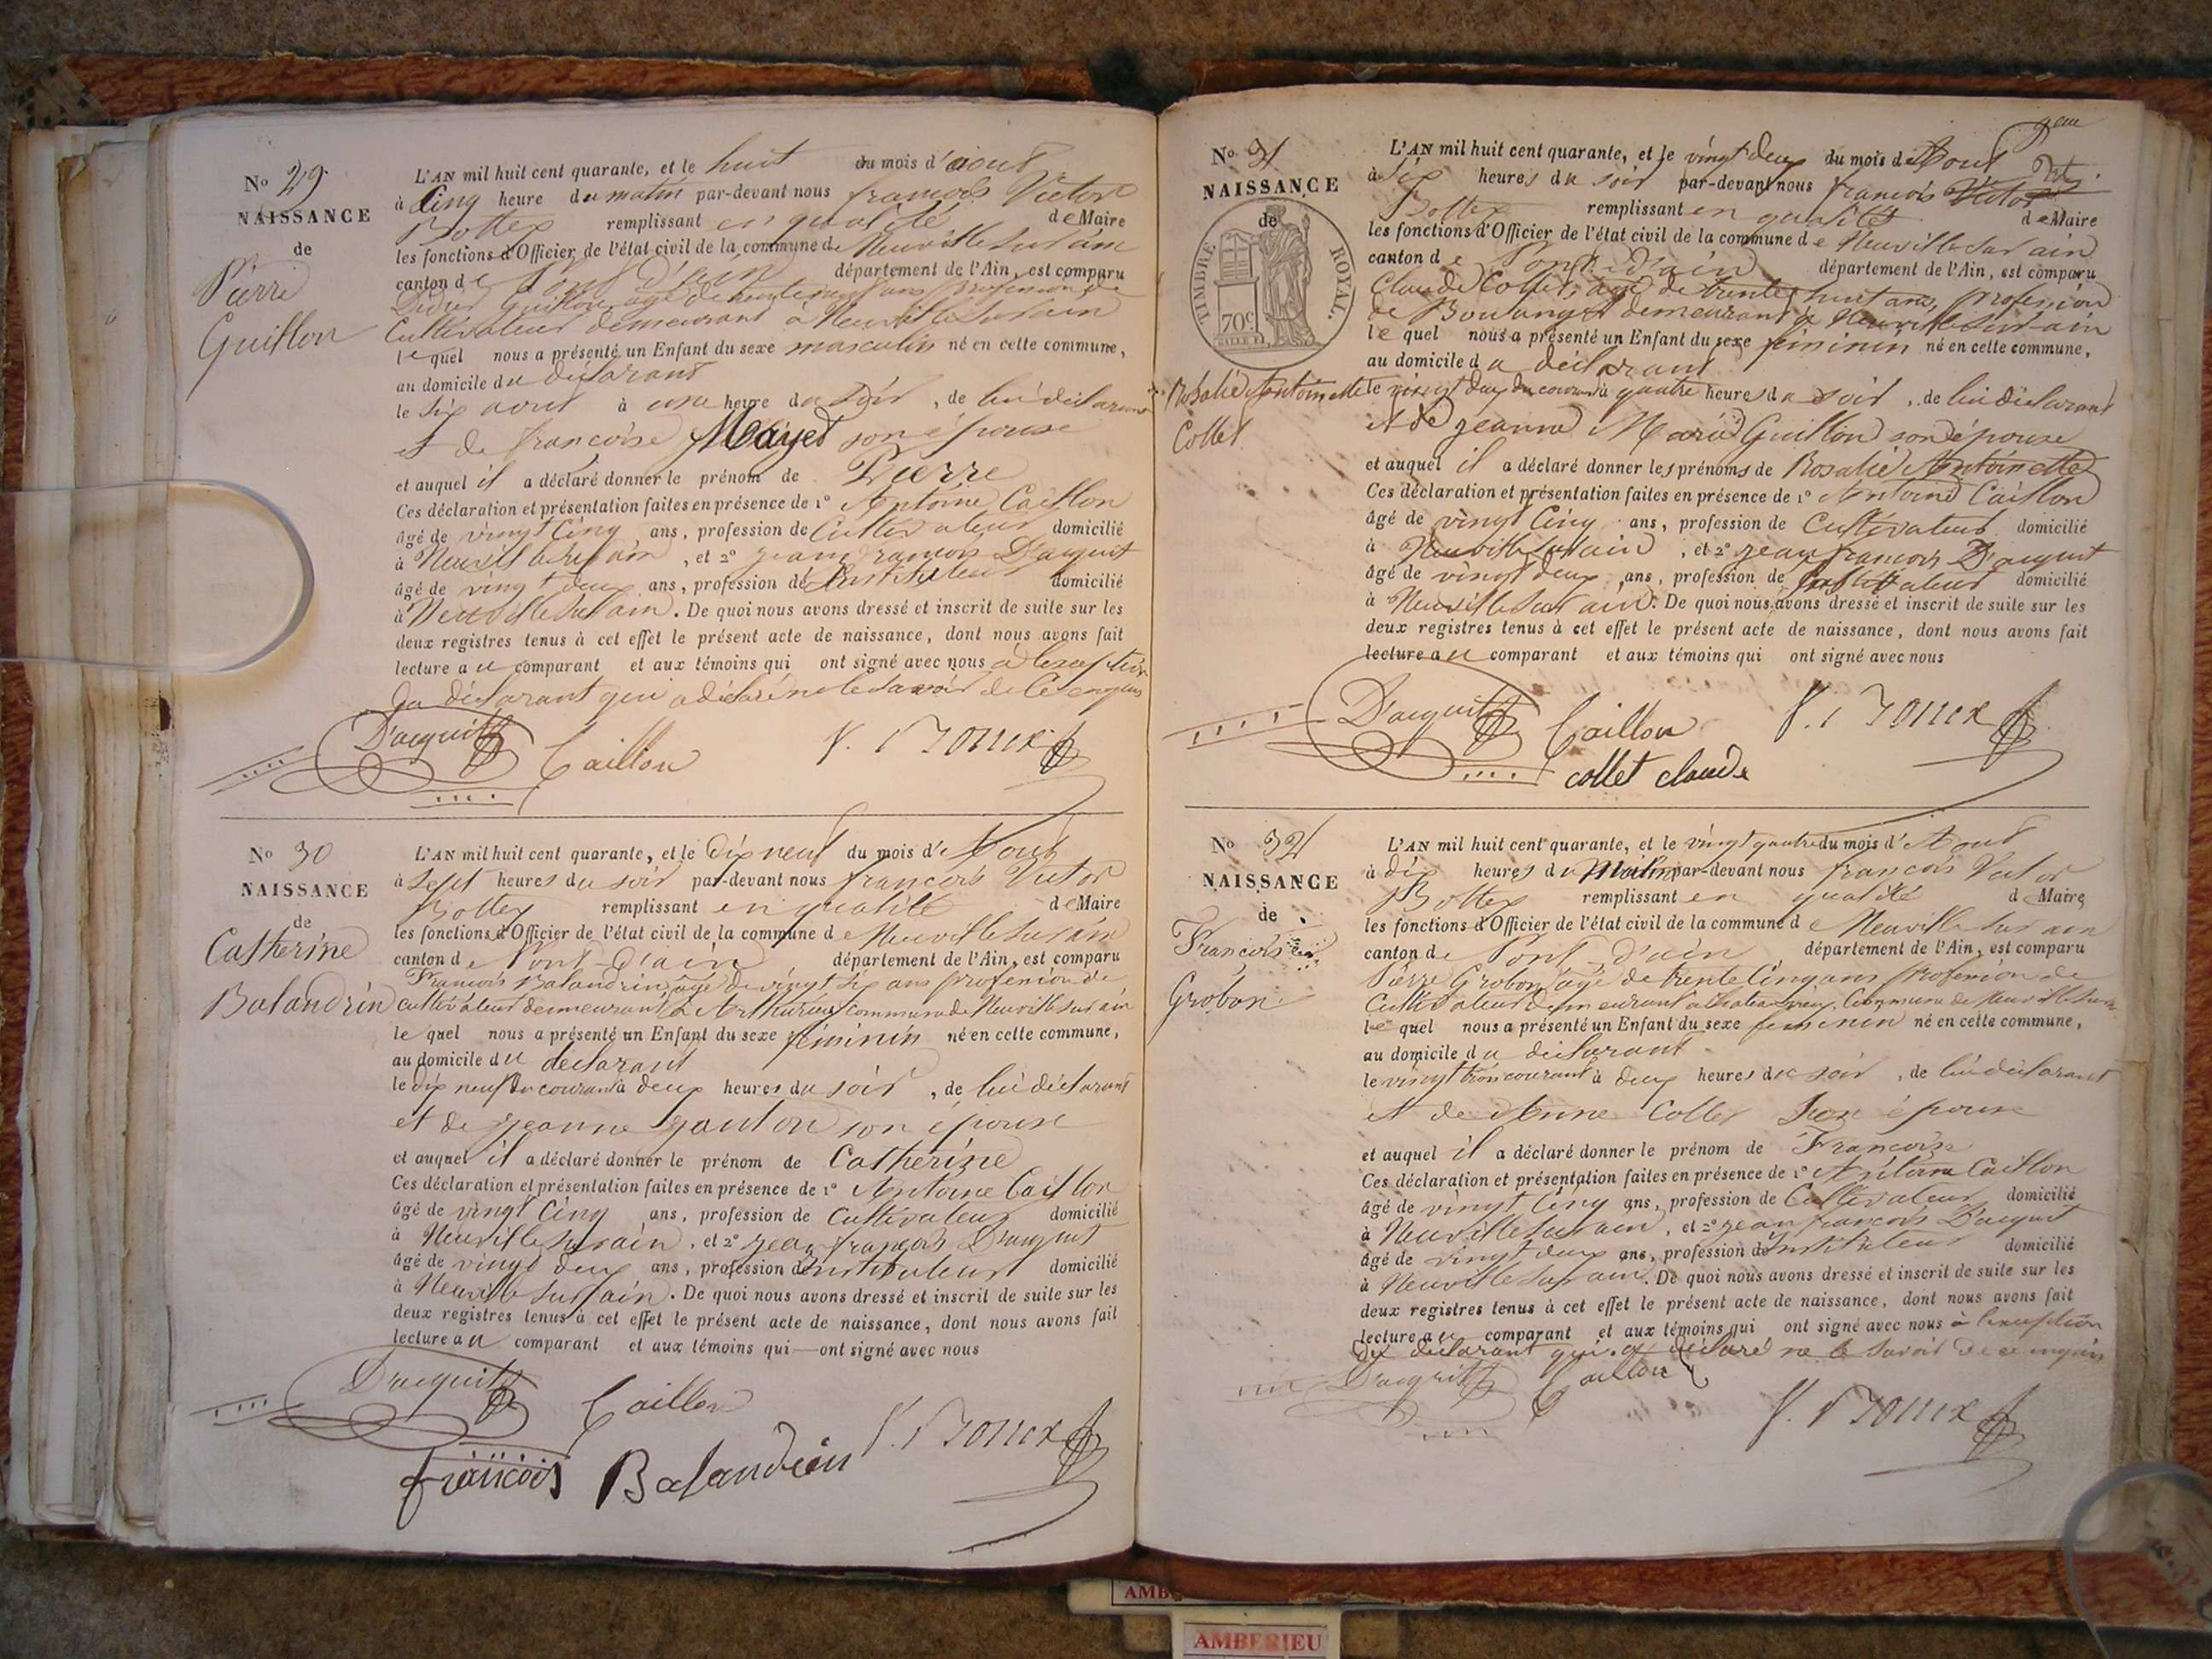 N° 29
NAISSANCE
de
Pierre
Guillon
L'AN mil huit cent quarante, et le huit du mois d'aout
à Cinq heure du matin par-devant nous francois Victor
Bottex remplissant en qualité de Maire
les fonctions d'Officier de l'état civil de la commune de Neuville sur ain
canton de Pont d'ain département de l'Ain, est comparu
Didier Guillon agé de ans profession de
Cultivateur demeurant à Neuville sur ain
le quel nous a présenté un Enfant du sexe masculin né en cette commune,
au domicile du déclarant
le six aout à une heure du soir, de lui déclarant
et de francoise Mayet son épouse
et auquel il a déclaré donner le prénom de Pierre
Ces déclaration et présentation faites en présence de 1° Antoine Caillon
âgé de vingt Cinq ans, profession de Cultivateur domicilié
à Neuville sur ain, et 2° jean francois D'acquit
âgé de vingt deux ans, profession de Instituteur domicilié
à Neuville sur ain. De quoi nous avons dressé et inscrit de suite sur les
deux registres tenus à cet effet le présent acte de naissance, dont nous avons fait
lecture au comparant et aux témoins qui ont signé avec nous a lexception
du déclarant qui a déclaré ne le savoir de ce enquis
D'acquit Caillon V. Bottex
N° 30
NAISSANCE
de
Catherine
Balandrin
L'AN mil huit cent quarante, et le dix neuf du mois d'Aout
à Sept heures du soir par-devant nous francois Victor
Bottex remplissant en qualité de Maire
les fonctions d'Officier de l'état civil de la commune de Neuville sur ain
canton de Pont-d'ain département de l'Ain, est comparu
Francois Balandrin âgé de vingt six ans profession de
cultivateur demeurant à commune de Neuville sur ain
le quel nous a présenté un Enfant du sexe féminin né en cette commune,
au domicile du déclarant
le dix neuf du courant à deux heures du soir, de lui déclarant
et de jeanne son épouse
et auquel il a déclaré donner le prénom de Catherine
Ces déclaration et présentation faites en présence de 1° Antoine Caillon
âgé de vingt Cinq ans, profession de Cultivateur domicilié
à Neuville sur ain, et 2° jean françois D'acquit
âgé de vingt deux ans, profession de instituteur domicilié
à Neuville sur ain. De quoi nous avons dressé et inscrit de suite sur les
deux registres tenus à cet effet le présent acte de naissance, dont nous avons fait
lecture au comparant et aux témoins qui — ont signé avec nous
D'acquit Caillon V. Bottex
francois Balandrin
N° 31
NAISSANCE
de
TIMBRE ROYAL.
70c
Rosalie Antoinette
Collet
L'AN mil huit cent quarante, et le vingt deux du mois de Aout
à six heures du soir par-devant nous francois Victor
Bottex remplissant en qualité de Maire
les fonctions d'Officier de l'état civil de la commune de Neuville sur ain
canton de Pont-d'ain département de l'Ain, est comparu
Claude Collet, agé de trente huit ans, profession
de Boulanger demeurant à Neuville sur ain
le quel nous a présenté un Enfant du sexe féminin né en cette commune,
au domicile du déclarant
le vingt deux du courant à quatre heures du soir, de lui déclarant
et de jeanne Marie Guillon son épouse
et auquel il a déclaré donner les prénoms de Rosalie Antoinette
Ces déclaration et présentation faites en présence de 1° Antoine Caillon
âgé de vingt Cinq ans, profession de Cultivateur domicilié
à Neuville sur ain, et 2° jean francois D'acquit
âgé de vingt deux ans, profession de Instituteur domicilié
à Neuville sur ain. De quoi nous avons dressé et inscrit de suite sur les
deux registres tenus à cet effet le présent acte de naissance, dont nous avons fait
lecture au comparant et aux témoins qui ont signé avec nous
D'acquit Caillon V. Bottex
collet claude
N° 32
NAISSANCE
de
Francoise
Grobon
L'AN mil huit cent quarante, et le vingt quatre du mois d'Aout
à dix heures du Matin par-devant nous francois Victor
Bottex remplissant en qualité de Maire
les fonctions d'Officier de l'état civil de la commune de Neuville sur ain
canton de Pont-d'ain département de l'Ain, est comparu
Pierre Grobon âgé de trente Cinq ans profession de
Cultivateur demeurant a Commune de Neuville sur ain
le quel nous a présenté un Enfant du sexe féminin né en cette commune,
au domicile du déclarant
le vingt trois courant à deux heures du soir, de lui déclarant
et de Anne Collet Son épouse
et auquel il a déclaré donner le prénom de Francoise
Ces déclaration et présentation faites en présence de 1° Antoine Caillon
âgé de vingt Cinq ans, profession de Cultivateur domicilié
à Neuville sur ain, et 2° jean francois D'acquit
âgé de vingt deux ans, profession de Instituteur domicilié
à Neuville sur ain. De quoi nous avons dressé et inscrit de suite sur les
deux registres tenus à cet effet le présent acte de naissance, dont nous avons fait
lecture au comparant et aux témoins qui ont signé avec nous à lexception
du déclarant qui a déclaré ne le savoir de ce enquis
D'acquit Caillon V. Bottex
AMBERIEU